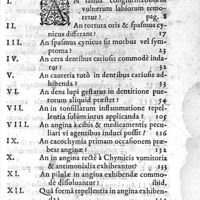 I. AN sanda conglutinationem
vulnerum labiorum remo-
retur? pag. 8
II. An tortura oris & spasmus cy-
nicus differant? 17
III. An spasmus cynicus sit morbus vel sym-
ptoma? 23
IV. An cera dentibus cariosis commodè inda-
tur? 52
V. An cauteria tutò in dentibus cariosis ad-
hibenda? 53
VI. An dens lupi gestatus in dentitione pue-
rorum aliquid præstet? 54
VII. An in tonsillarum inflammatione repel-
lentia solùm intus applicanda?
VIII. An angina læthis & medicamentis pecu-
liari vi agentibus induci possit?
IX. An cacochymia primam occasionem præ-
beat anginæ? 112
X. An in angina rectè à Chymicis vomitoria
& antimonialia exhibeantur? 135
XI. An pilulæ in angina exhibendæ commo-
dè dissolvantur? ibid.
XII. Quâ formâ repellentia in angina exhiben-